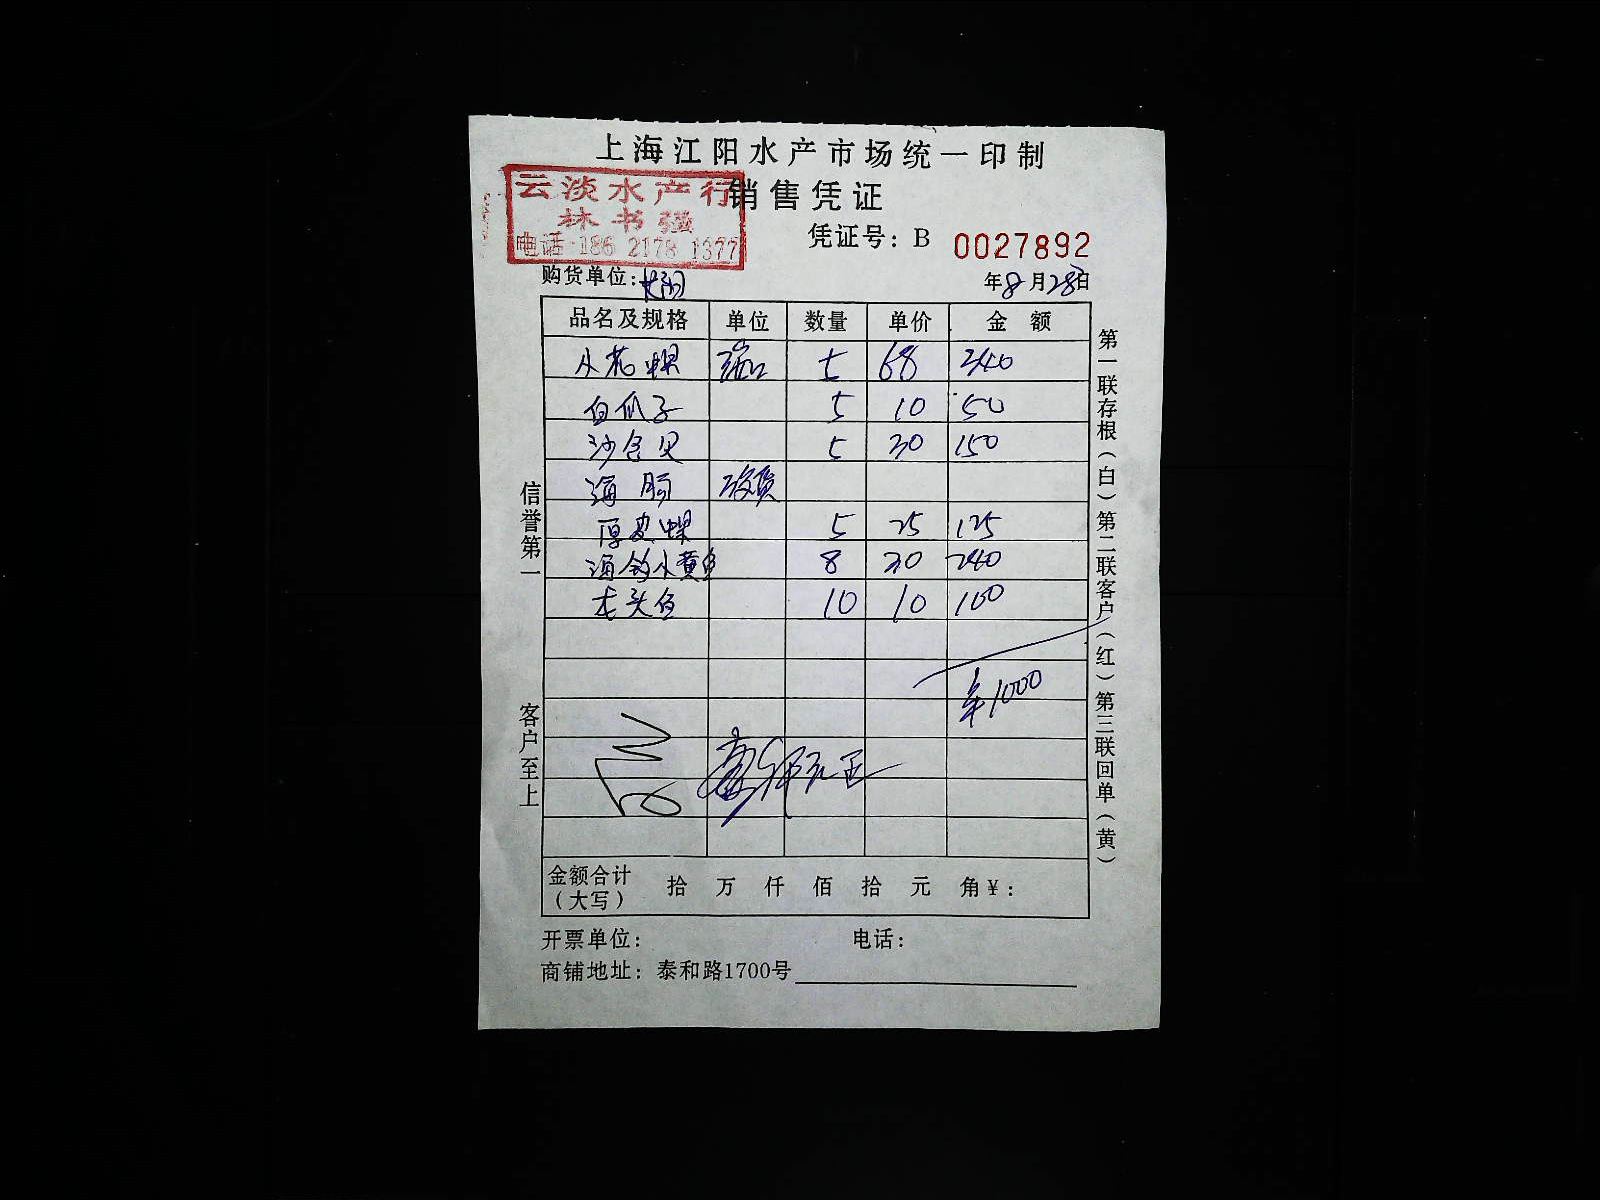 上海江阳水产市场统一印制
云淡水产行
销售凭证
林书强
电话:186 2178 1377
凭证号: B 0027892
购货单位:
年8月28日
品名及规格 单位 数量 单价 金额
小花螺 5 68 340
白瓜子 5 10 50
沙白贝 5 30 150
海肠
厚皮螺 5 25 125
海钓小黄鱼 8 30 240
老头鱼 10 10 100
¥1000
金额合计(大写) 拾 万 仟 佰 拾 元 角¥:
开票单位: 电话:
商铺地址: 泰和路1700号
信誉第一
客户至上
第一联存根(白)第二联客户(红)第三联回单(黄)